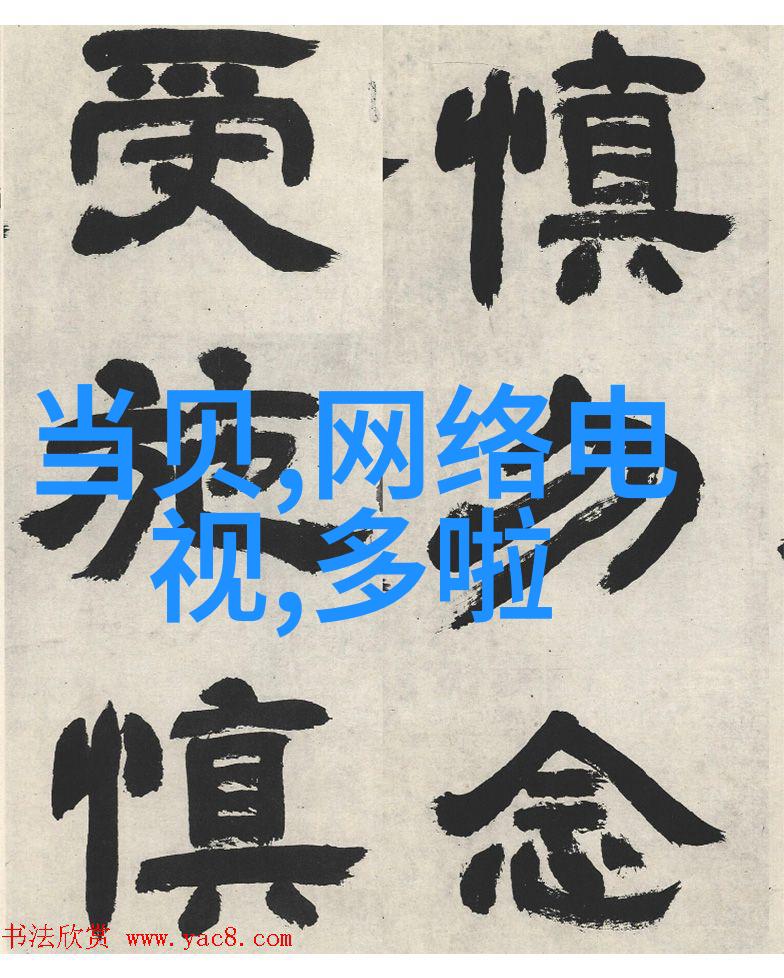 慎勿念
受施慎
当贝,网络电
视,多啦
书法欣赏 www.yac8.com